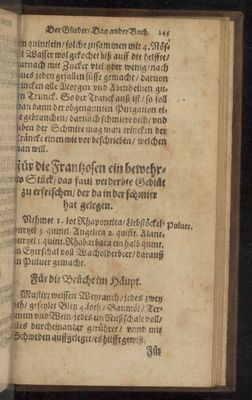 Der Glieder/ Das ander Buch. 245
in quintlein/ solche zusammen mit 4. Nös-
el Wasser wol gekochet biß auff die helffte/
darnach mit Zucker viel oder wenig/ nach
eines jeden gefallen süsse gemacht/ darvon
rincken alle Morgen und Abend einen gu-
en Trunck. So der Tranck auß ist/ so soll
man dann der obgenannten Purgation ei-
ne gebrauchen/ darnach schmiere dich/ und
neben der Schmire mag man trincken der
Träncke einen wie vor beschrieben/ welchen
man will.
Für die Frantzosen ein bewehr-
tes Stück/ das faul verderbte Geblüt
zu erfrischen/ der da in der schmier
hat gelegen.
Nehmet 1. lot Rhapontica/ Liebstöckel-
wurtzel 3 quintl. Angelica 2. quint. Alant-
wurtzel 1. quint. Rhabarbara ein halb quint.
ein Eyerschal voll Wacholderbeer/ daraus
ein Pulver gemacht.
Pulver.
Für die Brüche im Häupt.
Mastix/ weissen Weyrauch/ jedes zwey
loth/ geseyter Bley 4. loth/ Baumöl/ Ter-
pentin und Wein/ jedes ein Nußschale voll/
alles durcheinander gerühret/ unnd mit
Schweden auffgeleget/ es hilfft gewiß.
Für